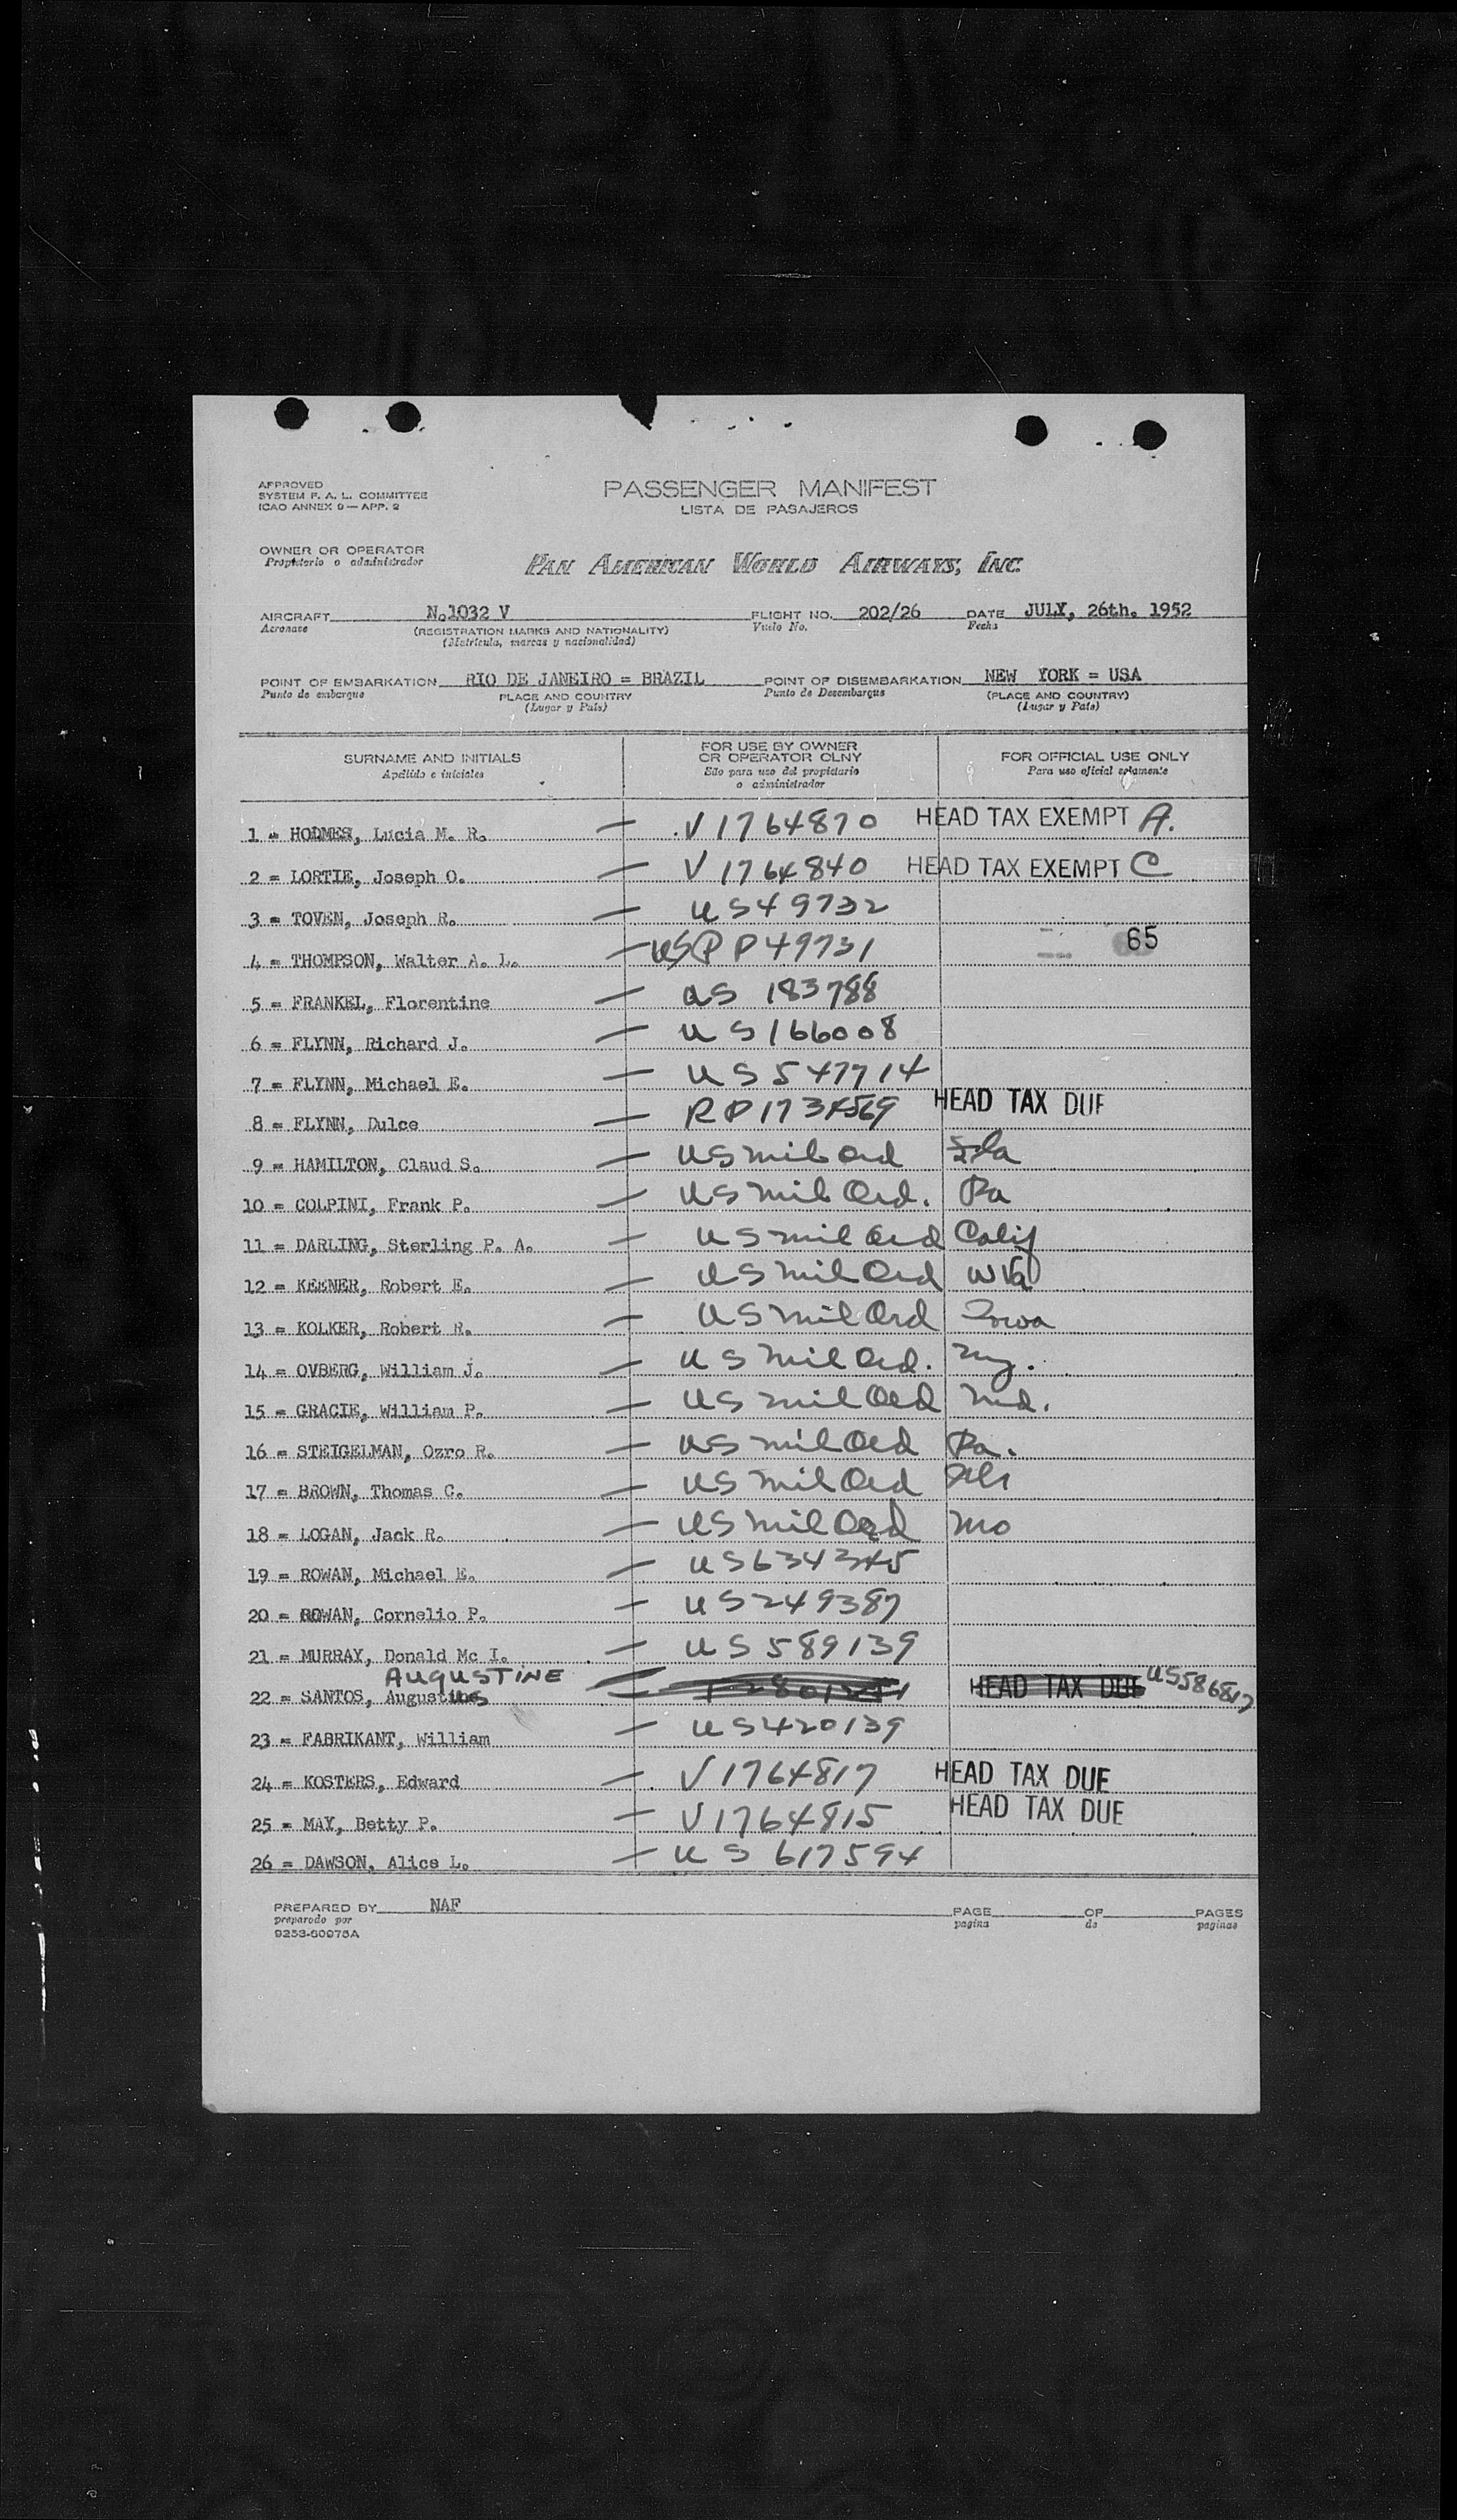 APPROVED
SYSTEM F. A. L. COMMITTEE
ICAO ANNEX 9 — APP. 2
PASSENGER MANIFEST
LISTA DE PASAJEROS
OWNER OR OPERATOR
Propietario o administrador
PAN AMERICAN WORLD AIRWAYS, INC.
AIRCRAFT N.1032 V FLIGHT NO. 202/26 DATE JULY, 26th. 1952
Aeronave (REGISTRATION MARKS AND NATIONALITY) Vuelo No. Fecha
(Matricula, marcas y nacionalidad)
POINT OF EMBARKATION RIO DE JANEIRO = BRAZIL POINT OF DISEMBARKATION NEW YORK = USA
Punto de embarque PLACE AND COUNTRY Punto de Desembarque (PLACE AND COUNTRY)
(Lugar y País) (Lugar y País)
SURNAME AND INITIALS
Apelido e iniciales
FOR USE BY OWNER
OR OPERATOR ONLY
São para uso del propietario
o administrador
FOR OFFICIAL USE ONLY
Para uso oficial solamente
1 = HOLMES, Lucia M. R. — V1764870 HEAD TAX EXEMPT A.
2 = LORTIE, Joseph O. — V1764840 HEAD TAX EXEMPT C
3 = TOVEN, Joseph R. — US49732
4 = THOMPSON, Walter A. L. — USPP49731 65
5 = FRANKEL, Florentine — US 183788
6 = FLYNN, Richard J. — US166008
7 = FLYNN, Michael E. — US547714
8 = FLYNN, Dulce — RP1734569 HEAD TAX DUE
9 = HAMILTON, Claud S. — US mil Ord Fla
10 = COLPINI, Frank P. — US mil Ord. Pa
11 = DARLING, Sterling P. A. — US mil Ord Calif
12 = KEENER, Robert E. — US mil Ord W Va
13 = KOLKER, Robert R. — US mil Ord Iowa
14 = OVBERG, William J. — US mil Ord. NY.
15 = GRACIE, William P. — US mil Ord Md.
16 = STEIGELMAN, Ozro R. — US mil Ord Pa.
17 = BROWN, Thomas C. — US mil Ord
18 = LOGAN, Jack R. — US mil Ord Mo
19 = ROWAN, Michael E. — US634345
20 = ROWAN, Cornelio P. — US249387
21 = MURRAY, Donald Mc I. — US589139
AUGUSTINE
22 = SANTOS, Augustine — HEAD TAX DUE US586817
23 = FABRIKANT, William — US420139
24 = KOSTERS, Edward — V1764817 HEAD TAX DUE
25 = MAY, Betty P. — V1764815 HEAD TAX DUE
26 = DAWSON, Alice L. — US 617594
PREPARED BY NAF PAGE OF PAGES
preparado por pagina de paginas
9253-60075A